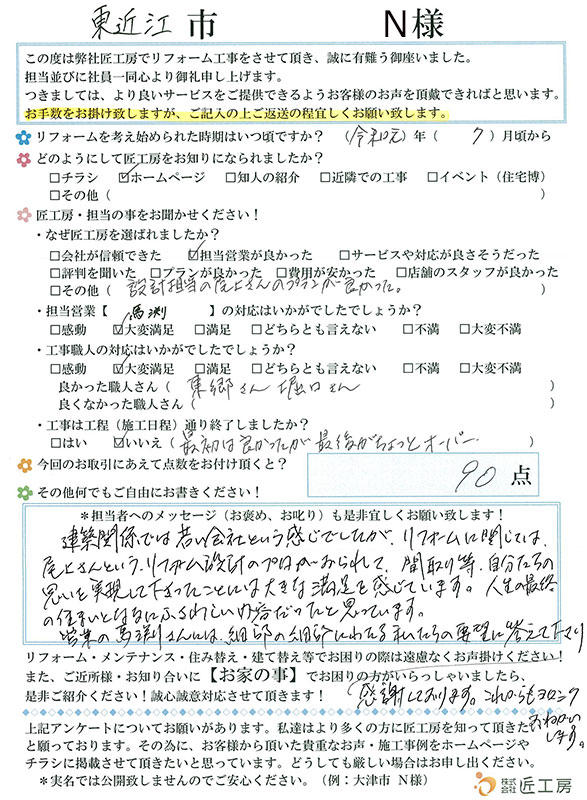 東近江市 N様
この度は弊社匠工房でリフォーム工事をさせて頂き、誠に有難う御座いました。
担当並びに社員一同心より御礼申し上げます。
つきましては、より良いサービスをご提供できるようお客様のお声を頂戴できればと思います。
お手数をお掛け致しますが、ご記入の上ご返送の程宜しくお願い致します。
リフォームを考え始められた時期はいつ頃ですか？（令和元）年（7）月頃から
どのようにして匠工房をお知りになられましたか？
□チラシ ☑ホームページ □知人の紹介 □近隣での工事 □イベント（住宅博）
□その他（ ）
匠工房・担当の事をお聞かせください！
・なぜ匠工房を選ばれましたか？
□会社が信頼できた ☑担当営業が良かった □サービスや対応が良さそうだった
□評判を聞いた □プランが良かった □費用が安かった □店舗のスタッフが良かった
□その他（設計担当の尾上さんのプランが良かった。）
・担当営業【馬渕】の対応はいかがでしたでしょうか？
□感動 ☑大変満足 □満足 □どちらとも言えない □不満 □大変不満
・工事職人の対応はいかがでしたでしょうか？
□感動 ☑大変満足 □満足 □どちらとも言えない □不満 □大変不満
良かった職人さん（東郷さん 堀口さん）
良くなかった職人さん（ ）
・工事は工程（施工日程）通り終了しましたか？
□はい ☑いいえ（最初は良かったが最後がちょっとオーバー）
今回のお取引にあえて点数をお付け頂くと？ 90点
その他何でもご自由にお書きください！
＊担当者へのメッセージ（お褒め、お叱り）も是非宜しくお願い致します！
建築関係では若い会社という感じでしたが、リフォームに関しては、
尾上さんというリフォーム設計のプロがおられて、間取り等、自分たちの
思いを実現して下さったことには大きな満足を感じています。人生の最終
の住まいとなるにふさわしい内容だったと思っています。
営業の馬渕さんには、細部の細部にわたる私たちの要望に答えて下さり
リフォーム・メンテナンス・住み替え・建て替え等でお困りの際は遠慮なくお声掛けください！
また、ご近所様・お知り合いに【お家の事】でお困りの方がいらっしゃいましたら、
是非ご紹介ください！誠心誠意対応させて頂きます！
感謝しております。これからもヨロシク
おねがい
します。
上記アンケートについてお願いがあります。私達はより多くの方に匠工房を知って頂きたい
と願っております。その為に、お客様から頂いた貴重なお声・施工事例をホームページや
チラシに掲載させて頂きたいと思っています。どうしても厳しい場合はお申し出ください。
＊実名では公開致しませんのでご安心ください。（例：大津市 N様）
株式会社 匠工房